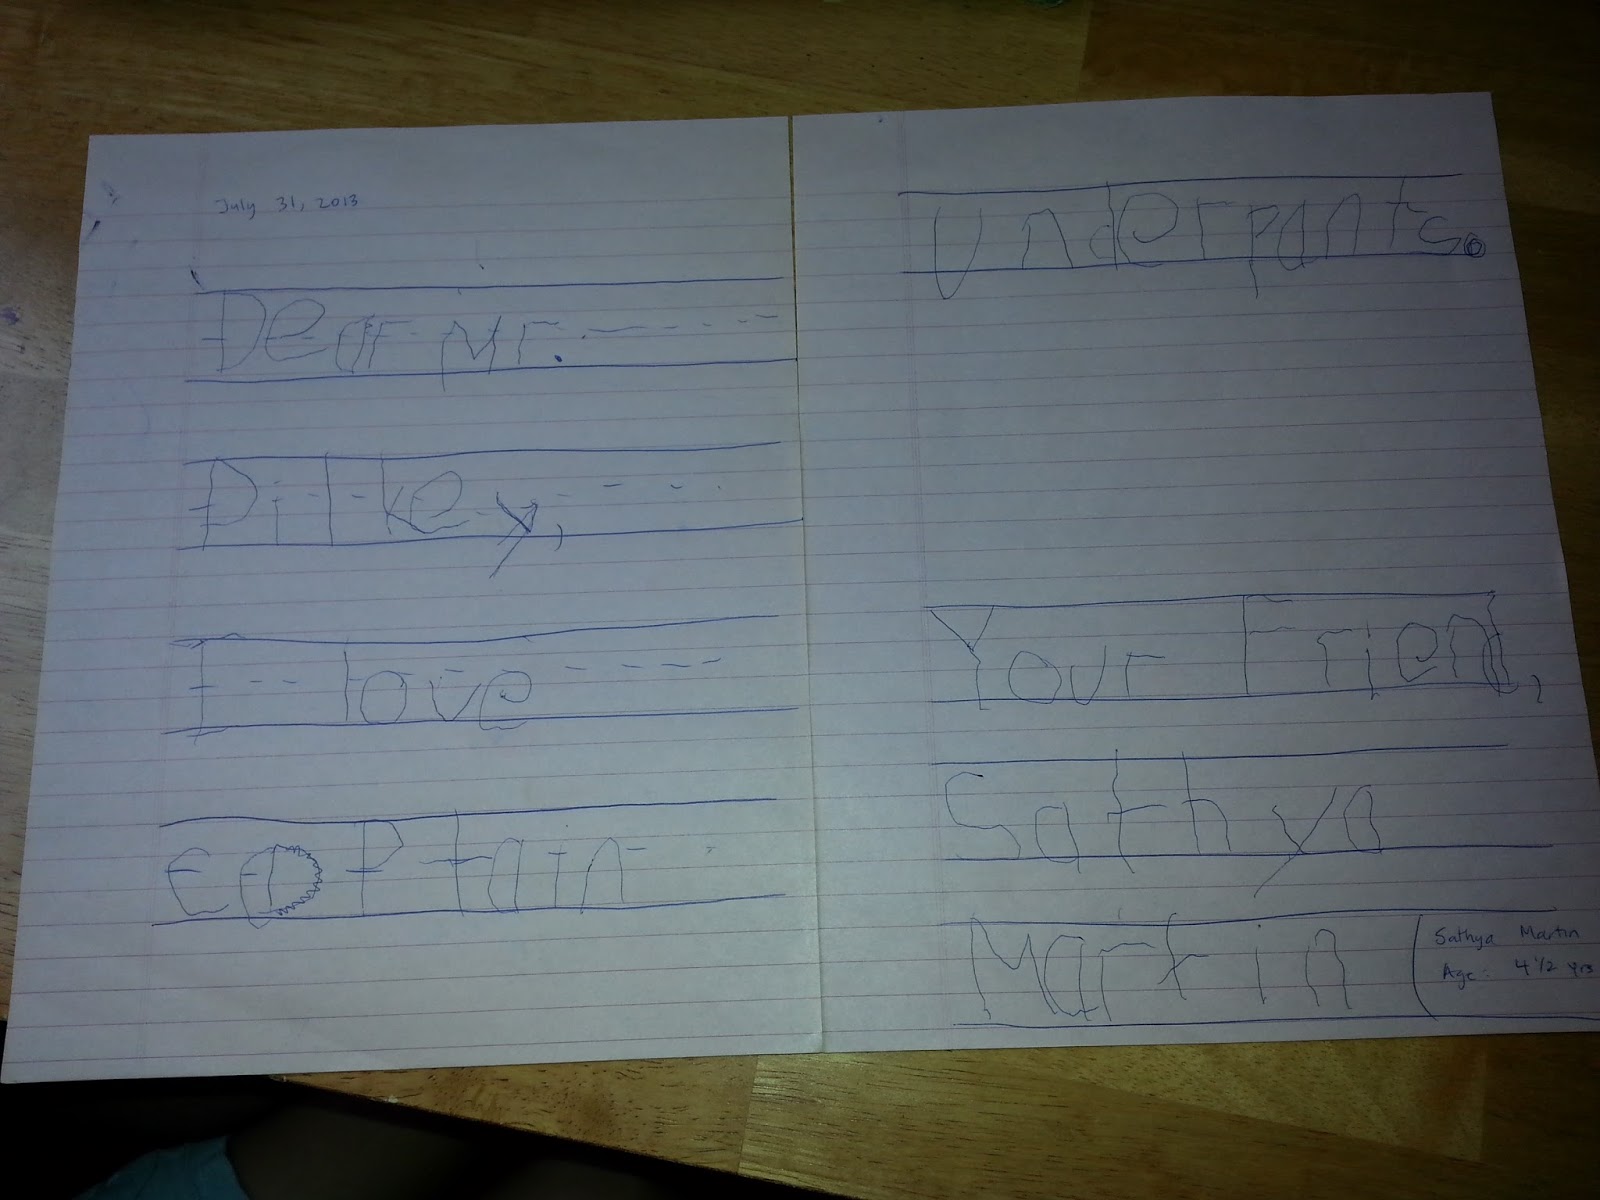 July 31, 2013
Dear Mr.
Pilkey,
I love
captain
Underpants.
Your Friend,
Sathya
Martin
Sathya Martin
Age: 4 1/2 yrs